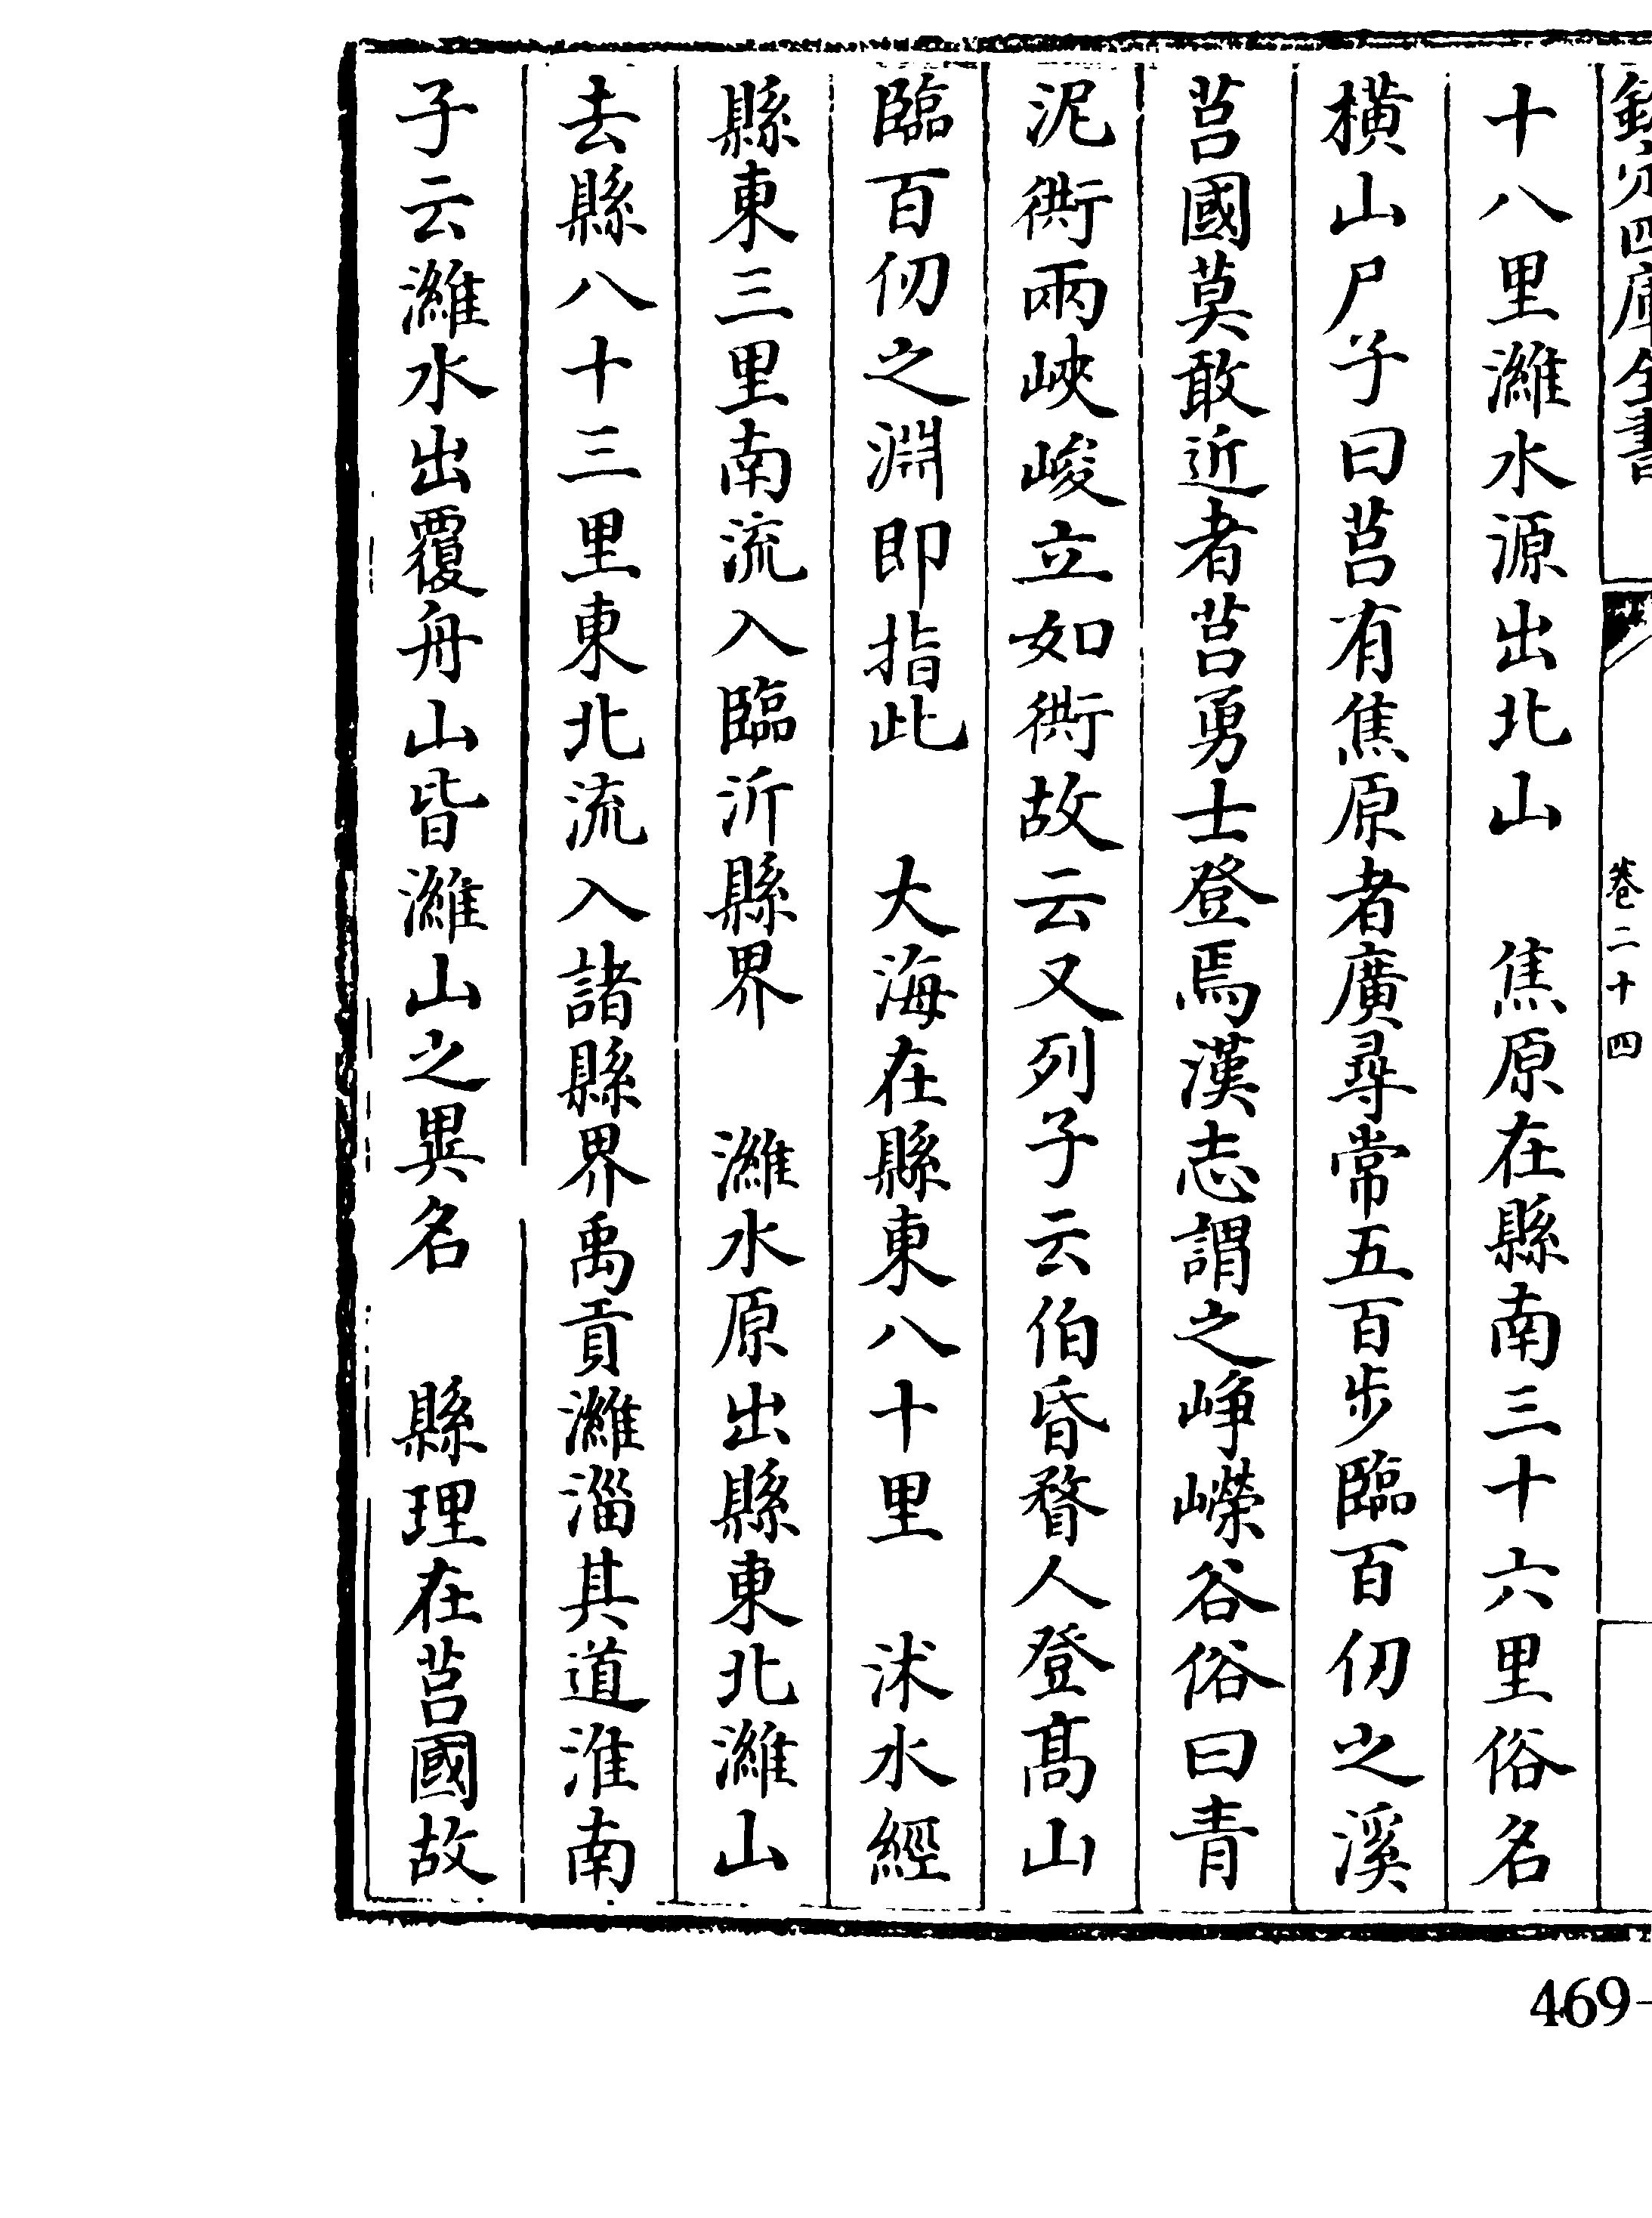 欽定四庫全書
卷二十四
十八里濰水源出北山　焦原在縣南三十六里俗名
橫山尸子曰莒有焦原者廣尋常五百步臨百仞之溪
莒國莫敢近者莒勇士登焉漢志謂之崢嶸谷俗曰青
泥衖兩峽峻立如衖故云又列子云伯昏瞀人登髙山
臨百仞之淵即指此　大海在縣東八十里　沭水經
縣東三里南流入臨沂縣界　濰水原出縣東北濰山
去縣八十三里東北流入諸縣界禹貢濰淄其道淮南
子云濰水出覆舟山皆濰山之異名　縣理在莒國故
469-